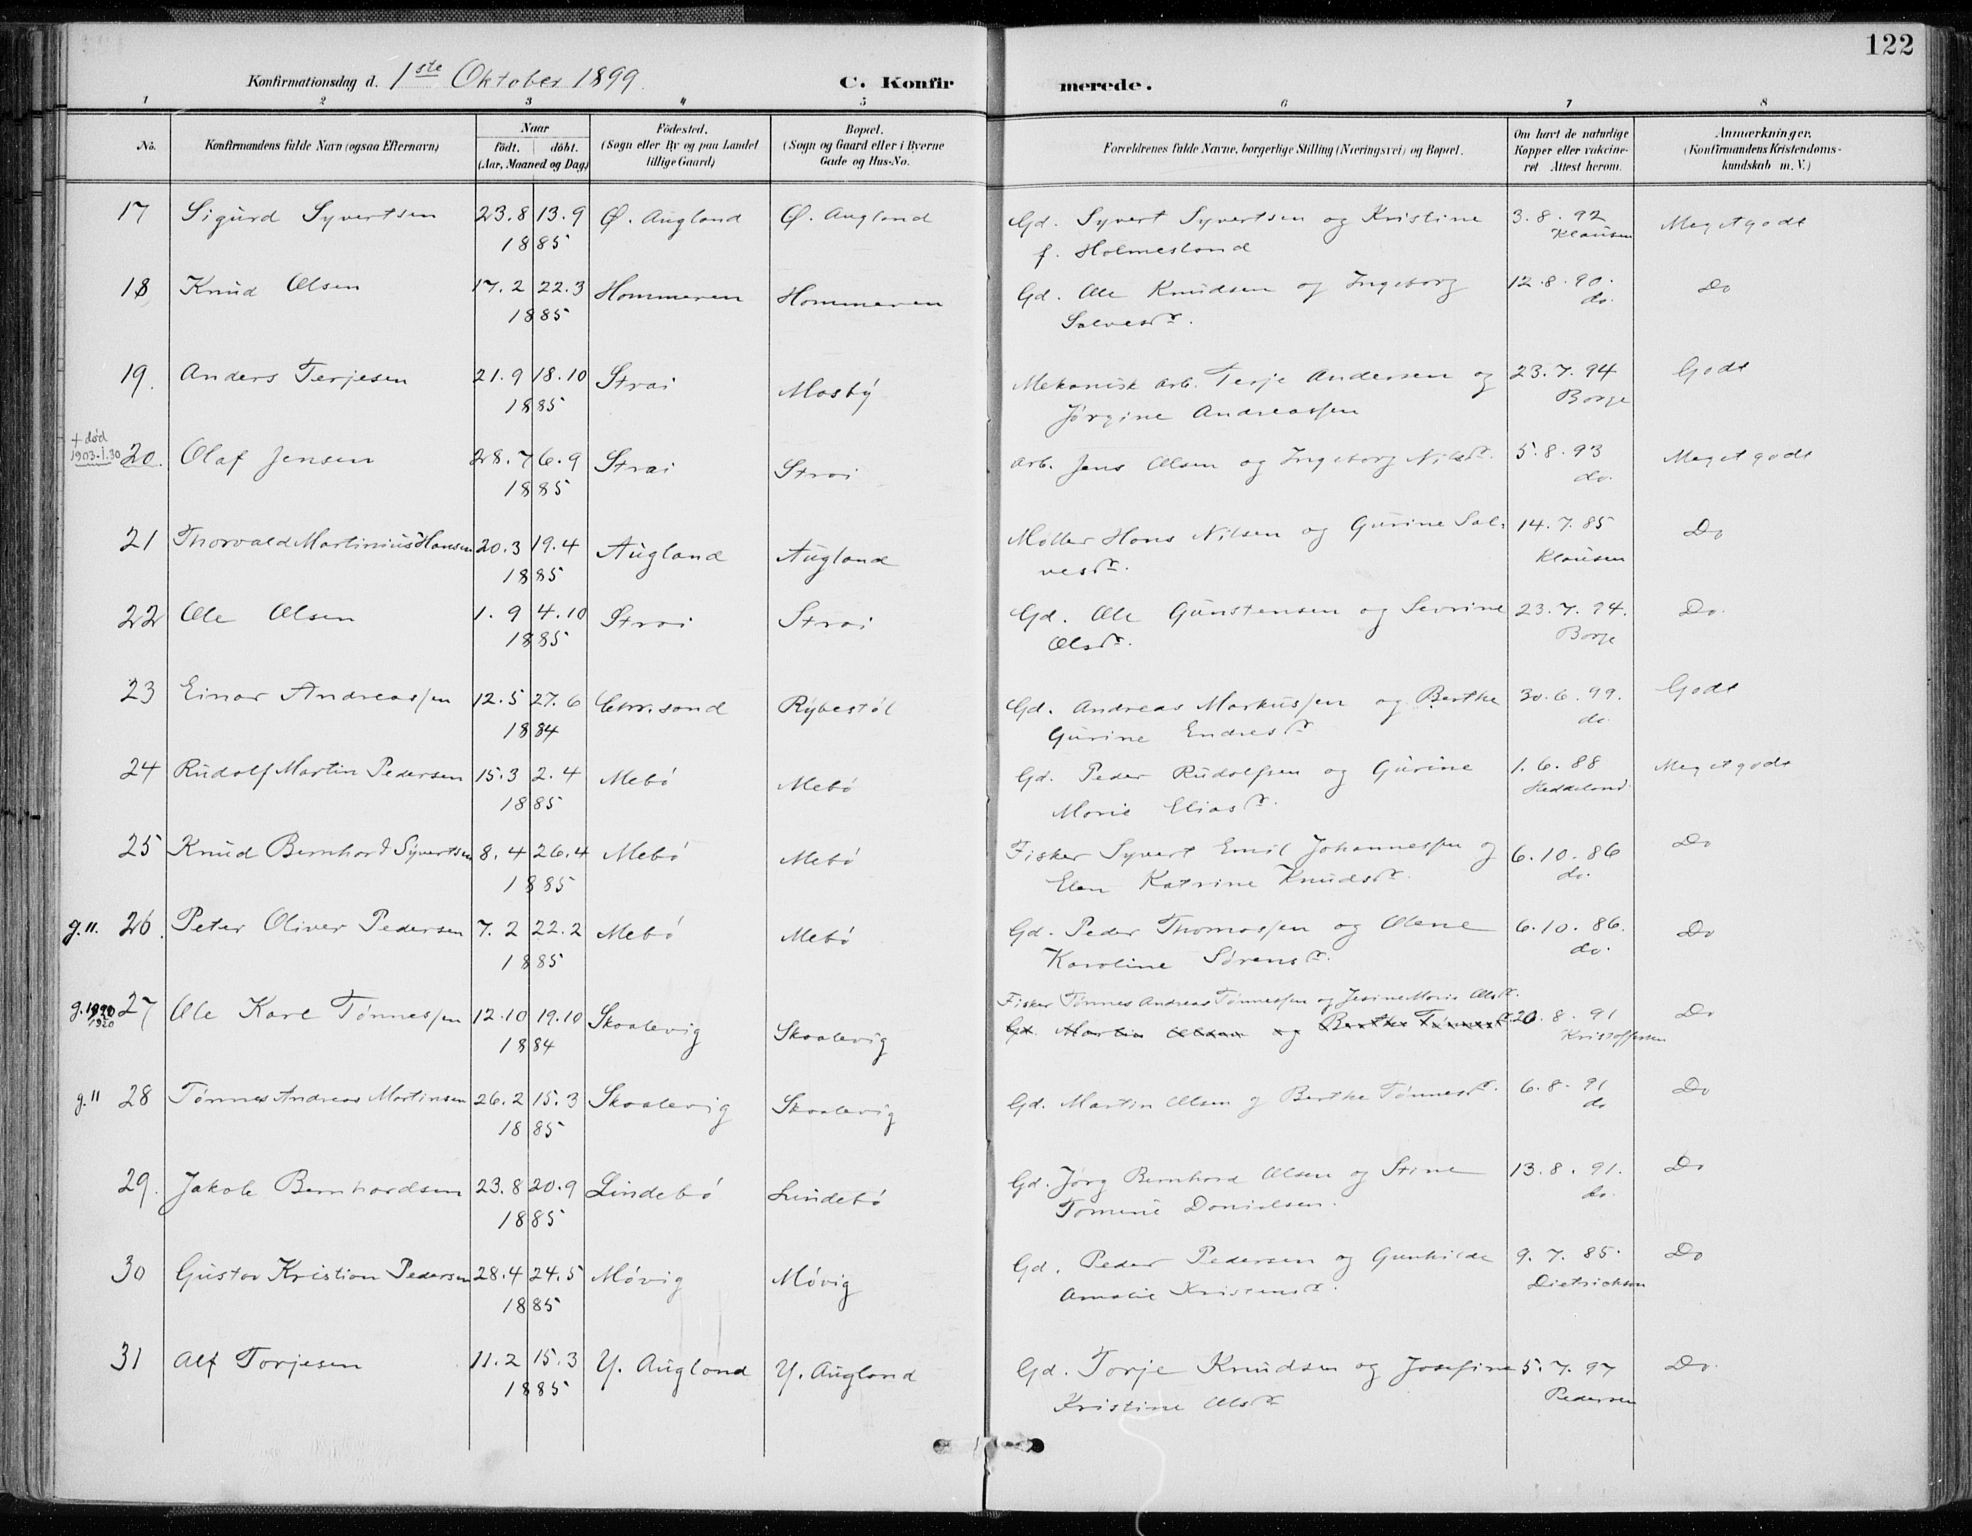 122
Konfirmationsdag d. 1ste Oktober 1899. C. Konfirmerede.
1 2 3 4 5 6 7 8
No. Konfirmandens fulde Navn (ogsaa Efternavn) Naar født. døbt. (Aar, Maaned og Dag) Fødested. (Sogn eller By og paa Landet tillige Gaard) Bopæl. (Sogn og Gaard eller i Byerne Gade og Hus-No. Forældrenes fulde Navne, borgerlige Stilling (Næringsvei) og Bopæl. Om havt de naturlige Kopper eller vaccineret Attest herom. Anmærkninger. (Konfirmandens Kristendomskundskab m. V.)
17 Sigurd Syvertsen 23.8 13.9 Ø. Augland Ø. Augland Gd. Syvert Syvertsen og Kristine 3.8.92 Meget godt
1885 f. Holmesland Klausen
18 Knud Olsen 17.2 22.3 Hommeren Hommeren Gd. Ole Knudsen og Ingeborg 12.8.90. Do
1885 Salvesdr. do.
19. Anders Terjesen 21.9 18.10 Strai Mosby Mekanisk arb. Terje Andersen og 23.7.94 Godt
1885 Jørgine Andreassen Borge
+ død 1903.1.30 20. Olaf Jensen 28.7 6.9 Strai Strai Arb. Jens Olsen og Ingeborg Nilsdr. 5.8.93 Meget godt
1885 do.
21 Thorvald Martinius Hansen 20.3 19.4 Augland Augland Møller Hans Nilsen og Gurine Sal- 14.7.85 Do
1885 vesdr. Klausen
22 Ole Olsen 1.9 4.10 Strai Strai Gd. Ole Gunstensen og Sevrine 23.7.94. Do.
1885 Olsdr. Borge
23 Einar Andreassen 12.5 27.6 Chr.sand Rybestøl Gd. Andreas Markussen og Berthe 30.6.99. Godt
1884 Gurine Endresdr. do.
24 Rudolf Martin Pedersen 15.3 2.4 Mebø Mebø Gd. Peder Rudolfsen og Gurine 1.6.88 Meget godt
1885 Marie Eliasdr. Heddeland.
25 Knud Bernhard Syvertsen 8.4 26.4 Mebø Mebø Fisker Syvert Emil Johannessen og 6.10.86 Do
1885 Elen Katrine Knudsdr. do.
g.11. 26. Peter Oliver Pedersen 7.2 22.2 Mebø Mebø Gd. Peder Thomassen og Olene 6.10.86. Do
1885 Karoline Sørensdr. do.
Fisker Tønnes Andreas Tønnessen og Jesine Marie Olsdr.
g. 1920 1920 27 Ole Karl Tønnessen 12.10 19.10 Skaalevig Skaalevig Gd. Martin Olsen og Berthe Tønnesdr. 20.8.91 Do
1884 Kristoffersen
g. 11 28 Tønnes Andreas Martinsen 26.2 15.3 Skaalevig Skaalevig Gd. Martin Olsen og Berthe Tønnesdr. 6.8.91 Do
1885 do
29. Jakob Bernhardsen 23.8 20.9 Lindebø Lindebø Gd. Jørg Bernhard Olsen og Stine 13.8.91. Do
1885 Tomine Danielsen. do.
30 Gustav Kristian Pedersen 28.4 24.5 Møvig Møvig Gd. Peder Pedersen og Gunhilde 9.7.85. Do
1885 Amalie Kristensdr. Dietrichson
31 Alf Torjesen 11.2 15.3 Y. Augland Y. Augland Gd. Torje Knudsen og Josefine 5.7.97 Do.
1885 Kristine Olsdr Pedersen